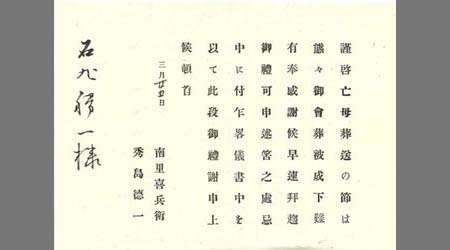 謹啓亡母葬送の節は
態々御會葬被成下難
有奉感謝候早速拜趨
御禮可申述筈之處忌
中に付乍畧儀書中を
以て此段御禮謝申上
候頓首
三月廿五日
南里喜兵衛
秀島德一
石丸勝一様